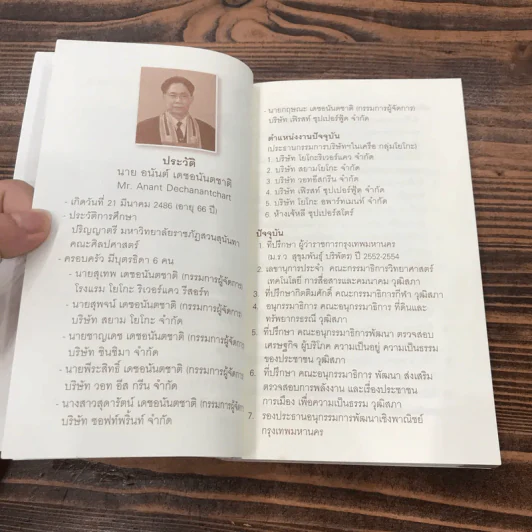 ประวัติ
นาย อนันต์ เดชอนันตชาติ
Mr. Anant Dechanantchart
- เกิดวันที่ 21 มีนาคม 2486 (อายุ 66 ปี)
- ประวัติการศึกษา
ปริญญาตรี มหาวิทยาลัยราชภัฏสวนสุนันทา
คณะศิลปศาสตร์
- ครอบครัว มีบุตรธิดา 6 คน
- นายสุเทพ เดชอนันตชาติ (กรรมการผู้จัดการ
โรงแรม โยโกะ ริเวอร์แคว รีสอร์ท
- นายสุพจน์ เดชอนันตชาติ (กรรมการผู้จัดการ
บริษัท สยาม โยโกะ จำกัด
- นายชาญเดช เดชอนันตชาติ (กรรมการผู้จัดการ
บริษัท ชินชิมา จำกัด
- นายพีระสิทธิ์ เดชอนันตชาติ (กรรมการผู้จัดการ
บริษัท วอท อีส กรีน จำกัด
- นางสาวสุดารัตน์ เดชอนันตชาติ (กรรมการผู้จัดการ
บริษัท ซอฟท์พริ้นท์ จำกัด
- นายกฤษณะ เดชอนันตชาติ (กรรมการผู้จัดการ
บริษัท เฟิรสท์ ซุปเปอร์ฟู้ด จำกัด
ตำแหน่งงานปัจจุบัน
(ประธานกรรมการบริษัทฯในเครือ กลุ่มโยโกะ)
1. บริษัท โยโกะริเวอร์แคว จำกัด
2. บริษัท สยามโยโกะ จำกัด
3. บริษัท วอทอีสกรีน จำกัด
4. บริษัท เฟิรสท์ ซุปเปอร์ฟู้ด จำกัด
5. บริษัท โยโกะ อพาร์ทเมนท์ จำกัด
6. ห้างเจ้หลี ซุปเปอร์สโตร์
ปัจจุบัน
1. ที่ปรึกษา ผู้ว่าราชการกรุงเทพมหานคร
(ม.ร.ว. สุขุมพันธุ์ บริพัตร) ปี 2552-2554
2. เลขานุการประจำ คณะกรรมาธิการวิทยาศาสตร์
เทคโนโลยี การสื่อสารและคมนาคม วุฒิสภา
3. ที่ปรึกษากิตติมศักดิ์ คณะกรรมาธิการกีฬา วุฒิสภา
4. อนุกรรมาธิการ คณะอนุกรรมาธิการ ที่ดินและ
ทรัพยากรธรณี วุฒิสภา
5. ที่ปรึกษา คณะอนุกรรมาธิการพัฒนา ตรวจสอบ
เศรษฐกิจ ผู้บริโภค ความเป็นอยู่ ความเป็นธรรม
ของประชาชน วุฒิสภา
6. ที่ปรึกษา คณะอนุกรรมาธิการ พัฒนา ส่งเสริม
ตรวจสอบการพลังงาน และเรื่องประชาชน
การเมือง เพื่อความเป็นธรรม วุฒิสภา
7. รองประธานอนุกรรมการพัฒนาเชิงพาณิชย์
กรุงเทพมหานคร